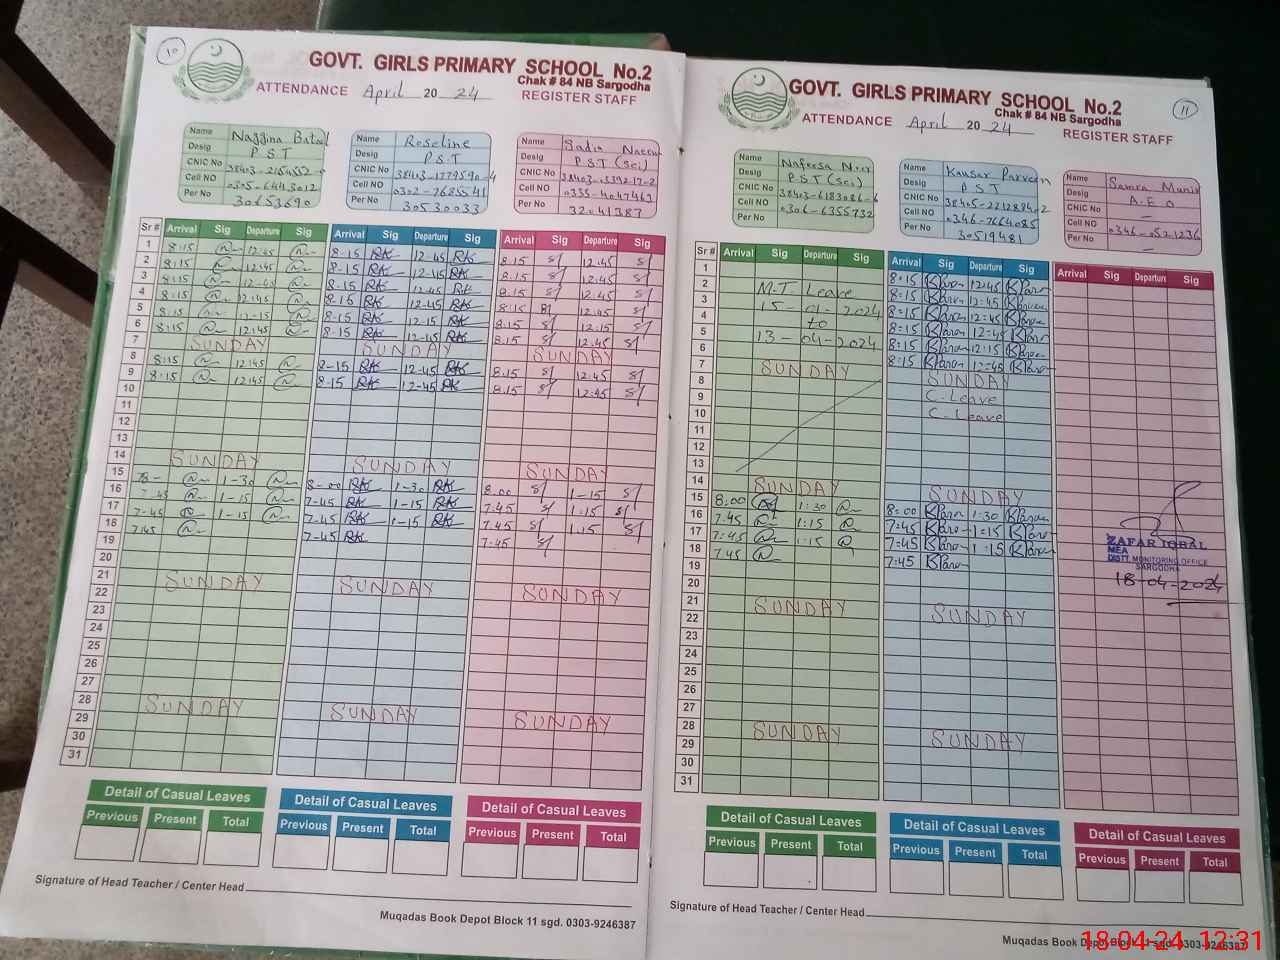 10
GOVT. GIRLS PRIMARY SCHOOL No.2
Chak # 84 NB Sargodha
ATTENDANCE April 20 24 REGISTER STAFF
Name Naggina Batool
Desig P S T
CNIC No
Cell NO 0305-6443012
Per No 30653690
Name Roseline
Desig P.S.T
CNIC No
Cell NO 0302-7685541
Per No 30530033
Name Sadia
Desig PST (Sci)
CNIC No
Cell NO 0335-4047463
Per No 32041387
Sr # Arrival Sig Departure Sig Arrival Sig Departure Sig Arrival Sig Departure Sig
1 8:15 12:45 8-15 RK 12-45 RK 8.15 12:45
2 8:15 12:45 8-15 RK 12-45 RK 8:15 12:45
3 8:15 12:45 8-15 RK 12-45 RK 8:15 12:45
4 8:15 12:45 8-15 RK 12-45 RK 8:15 12:45
5 8:15 12-15 8-15 RK 12-15 RK 8.15 12:15
6 8:15 12:45 8-15 RK 12-45 RK 8.15 12:45
7 SUNDAY SUNDAY SUNDAY
8 8:15 12:45 8-15 RK 12-45 RK 8:15 12:45
9 8:15 12:45 8-15 RK 12-45 RK 8:15 12:45
10
11
12
13
14 SUNDAY SUNDAY SUNDAY
15 8- 1-30 8-00 RK 1-30 RK 8.00 1-15
16 7.45 1-15 7-45 RK 1-15 RK 7:45 1:15
17 7-45 1-15 7-45 RK 1-15 RK 7:45 1.15
18 7:45 7-45 RK 7:45
19
20
21 SUNDAY SUNDAY SUNDAY
22
23
24
25
26
27
28 SUNDAY SUNDAY SUNDAY
29
30
31
Detail of Casual Leaves Detail of Casual Leaves Detail of Casual Leaves
Previous Present Total Previous Present Total Previous Present Total
Signature of Head Teacher / Center Head
Muqadas Book Depot Block 11 sgd. 0303-9246387
11
GOVT. GIRLS PRIMARY SCHOOL No.2
Chak # 84 NB Sargodha
ATTENDANCE April 20 24 REGISTER STAFF
Name Nafeesa Noor
Desig P.S.T (Sci)
CNIC No 38403-6183086-6
Cell NO 0306-6355732
Per No
Name Kausar Parveen
Desig P S T
CNIC No 38405-2212884-2
Cell NO 0346-7664085
Per No 30519481
Name Samra Munir
Desig A.E.O
CNIC No –
Cell NO 0346-0521236
Per No –
Sr # Arrival Sig Departure Sig Arrival Sig Departure Sig Arrival Sig Departure Sig
1 8:15 KParv 12:45 KParveen
2 M.T Leave 8:15 KParv 12:45 KParveen
3 15-01-2024 8:15 KParv 12:45 KParveen
4 to 8:15 KParv 12:45 KParveen
5 13-04-2024 8:15 KParv 12:15 KParveen
6 8:15 KParv 12:45 KParveen
7 SUNDAY SUNDAY
8 C-Leave
9 C-Leave
10
11
12
13
14 SUNDAY SUNDAY
15 8.00 1:30 8:00 KParv 1:30 KParveen
16 7.45 1:15 7:45 KParv 1:15 KParveen
17 7:45 1:15 7:45 KParv 1:15 KParveen
18 7.45 7:45 KParv
19
20
21 SUNDAY SUNDAY
22
23
24
25
26
27
28 SUNDAY SUNDAY
29
30
31
ZAFAR IQBAL
MEA
DISTT. MONITORING OFFICE
SARGODHA
18-04-2024
Detail of Casual Leaves Detail of Casual Leaves Detail of Casual Leaves
Previous Present Total Previous Present Total Previous Present Total
Signature of Head Teacher / Center Head
Muqadas Book Depot Block 11 sgd. 0303-9246387
18-04-24 12:31